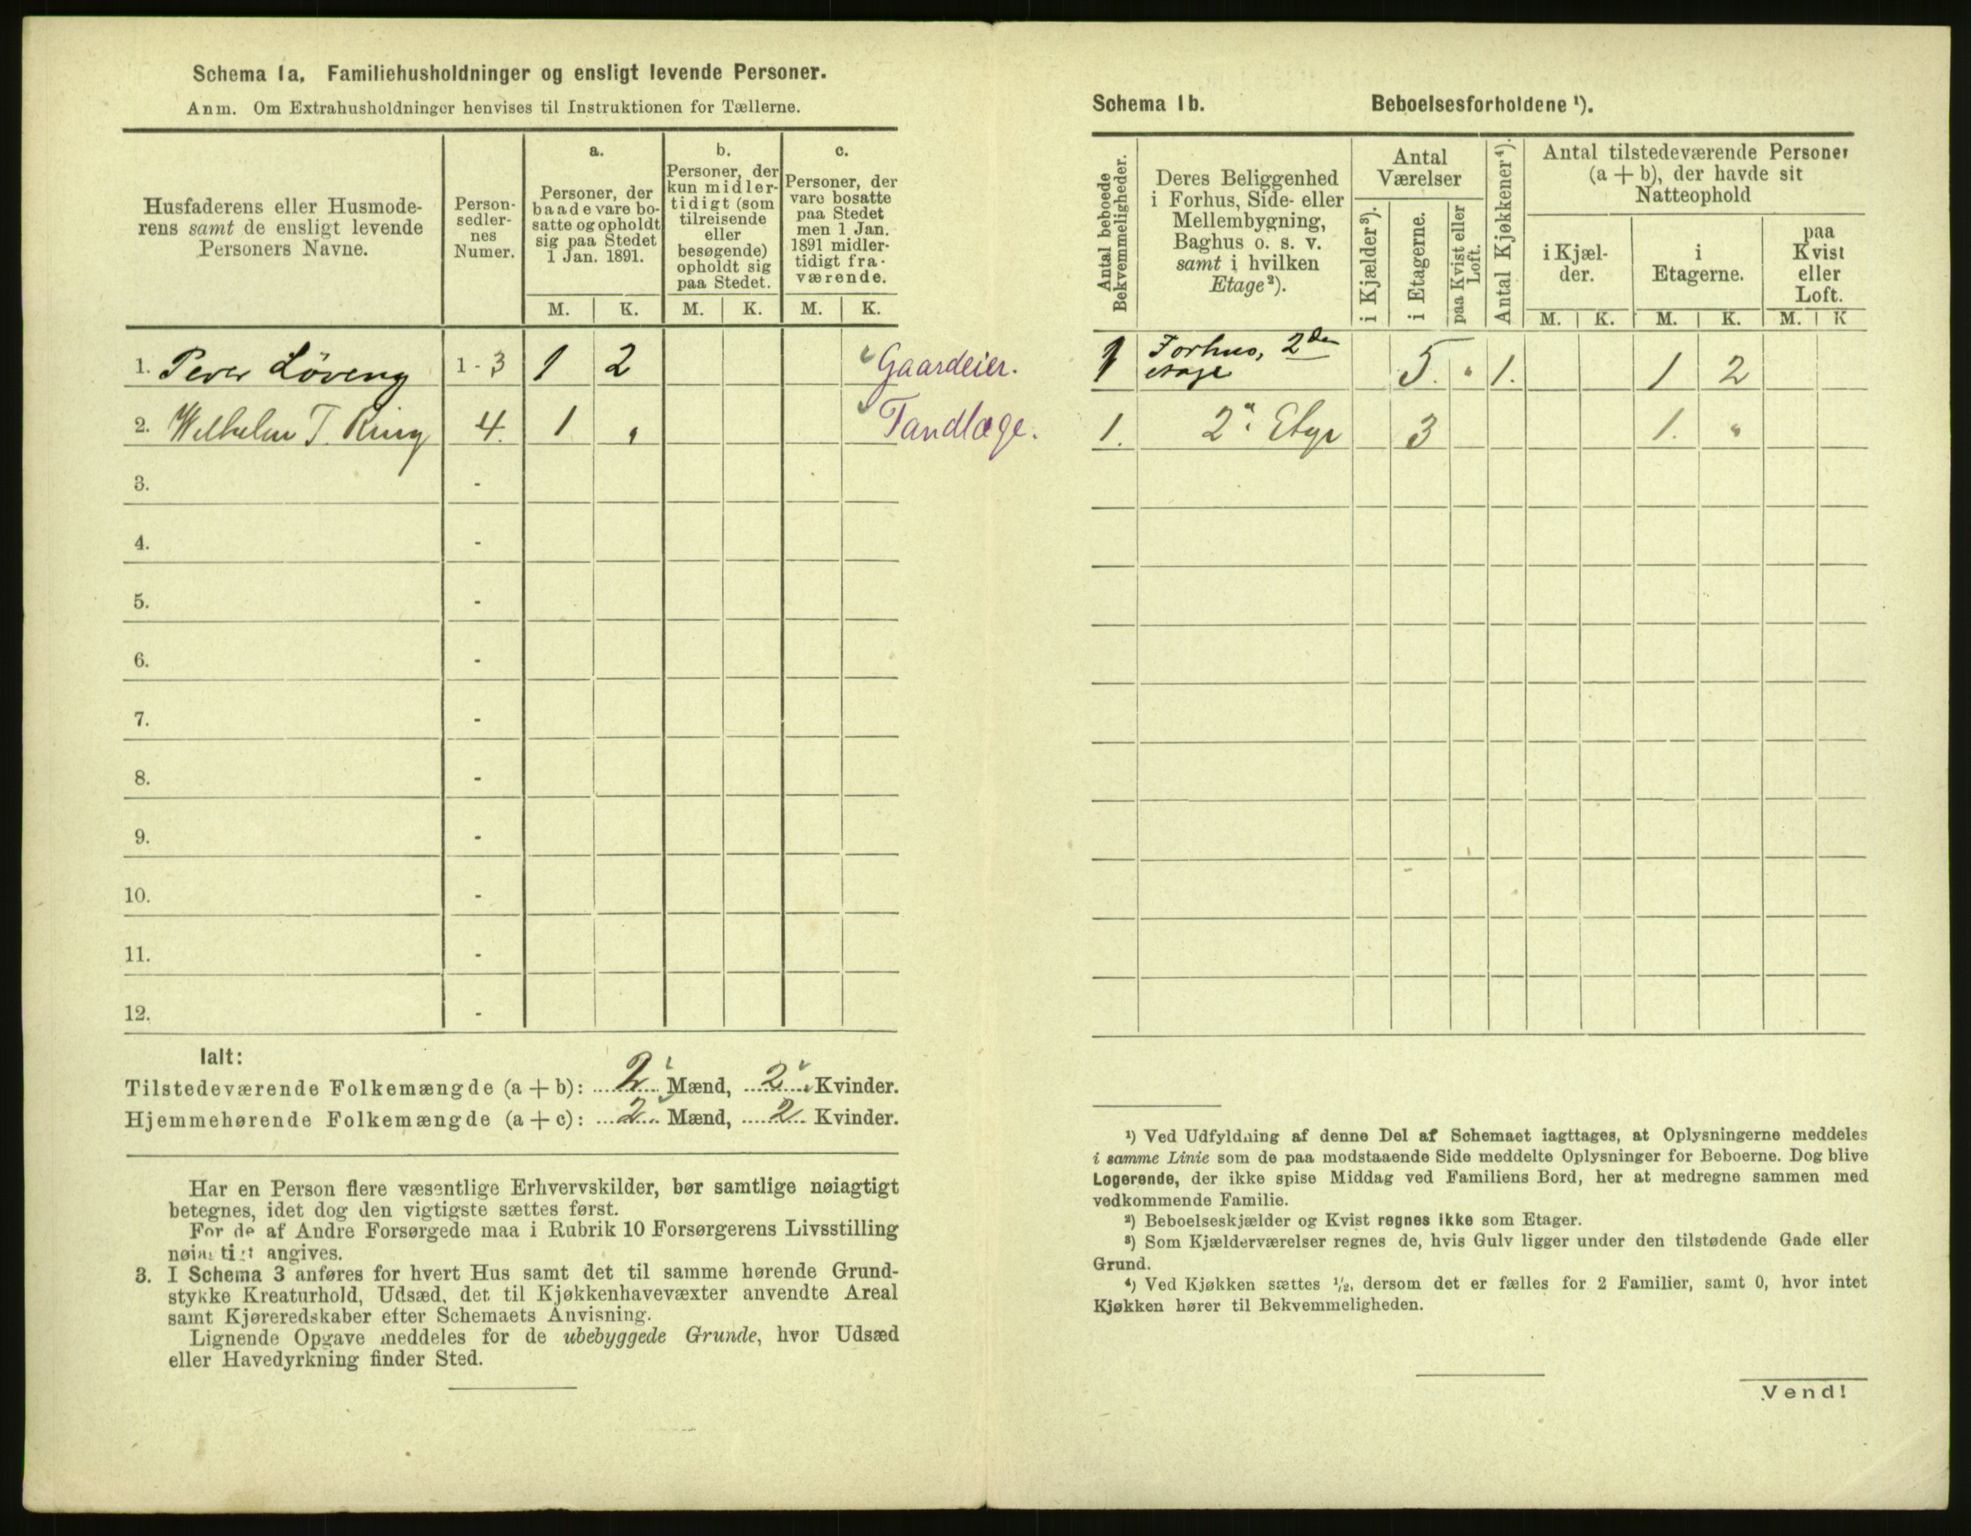 Schema 1a. Familiehusholdninger og ensligt levende Personer.
Anm. Om Extrahusholdninger henvises til Instruktionen for Tællerne.
Husfaderens eller Husmode-
rens samt de ensligt levende
Personers Navne.
Person-
sedler-
nes
Numer.
a.
Personer, der
baade vare bo-
satte og opholdt
sig paa Stedet
1 Jan. 1891.
b.
Personer, der
kun midler-
tidigt (som
tilreisende
eller
besøgende)
opholdt sig
paa Stedet.
c.
Personer, der
vare bosatte
paa Stedet
men 1 Jan.
1891 midler-
tidigt fra-
værende.
M. K. M. K. M. K.
1. Peter Löveng 1-3 1 2 Gaardeier.
2. Wilhelm T. Ring 4. 1 " Tandlæge.
3. -
4. -
5. -
6. -
7. -
8. -
9. -
10. -
11. -
12. -
Ialt:
Tilstedeværende Folkemængde (a + b): 2 Mænd, 2 Kvinder.
Hjemmehørende Folkemængde (a + c): 2 Mænd, 2 Kvinder.
Har en Person flere væsentlige Erhvervskilder, bør samtlige nøiagtigt
betegnes, idet dog den vigtigste sættes først.
For de af Andre Forsørgede maa i Rubrik 10 Forsørgerens Livsstilling
nøiagtigt angives.
3. I Schema 3 anføres for hvert Hus samt det til samme hørende Grund-
stykke Kreaturhold, Udsæd, det til Kjøkkenhavevæxter anvendte Areal
samt Kjøreredskaber efter Schemaets Anvisning.
Lignende Opgave meddeles for de ubebyggede Grunde, hvor Udsæd
eller Havedyrkning finder Sted.
Schema 1b. Beboelsesforholdene ¹).
Antal beboede
Bekvemmeligheder.
Deres Beliggenhed
i Forhus, Side- eller
Mellembygning,
Baghus o. s. v.
samt i hvilken
Etage²).
Antal
Værelser
i Kjælder³).
i Etagerne.
paa Kvist eller
Loft.
Antal Kjøkkener⁴).
Antal tilstedeværende Personer
(a + b), der havde sit
Natteophold
i Kjæl-
der.
i
Etagerne.
paa
Kvist
eller
Loft.
M. K. M. K. M. K
1 Forhus, 2den etage 5. " 1. 1 2
1. 2n Etge 3 1. "
¹) Ved Udfyldning af denne Del af Schemaet iagttages, at Oplysningerne meddeles
i samme Linie som de paa modstaaende Side meddelte Oplysninger for Beboerne. Dog blive
Logerende, der ikke spise Middag ved Familiens Bord, her at medregne sammen med
vedkommende Familie.
²) Beboelseskjælder og Kvist regnes ikke som Etager.
³) Som Kjælderværelser regnes de, hvis Gulv ligger under den tilstødende Gade eller
Grund.
⁴) Ved Kjøkken sættes ½, dersom det er fælles for 2 Familier, samt 0, hvor intet
Kjøkken hører til Bekvemmeligheden.
Vend!